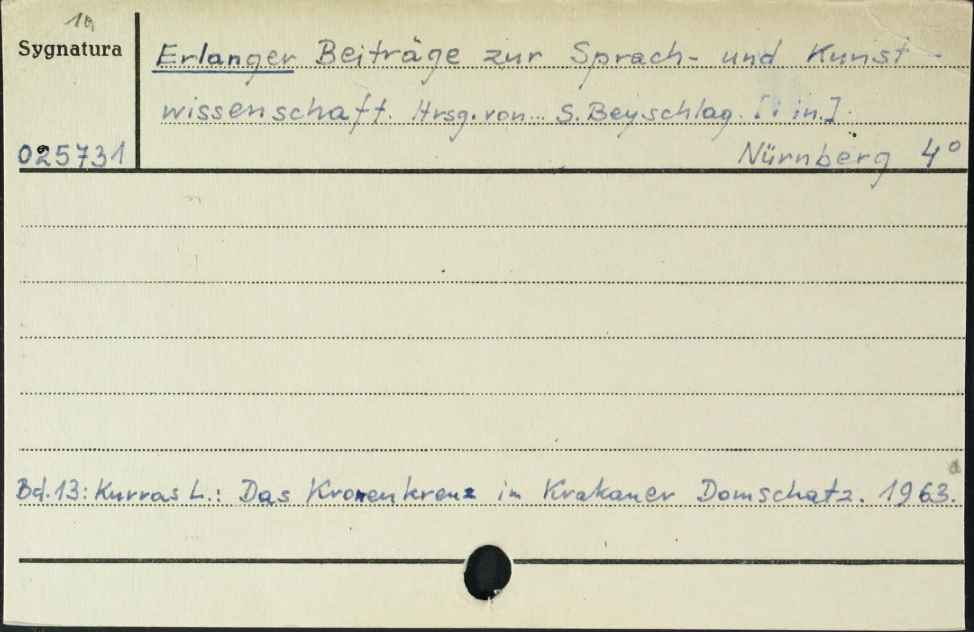 1a
Sygnatura
Erlanger Beiträge zur Sprach- und Kunst-
wissenschaft. Hrsg. von... S. Beyschlag. [i in.].
025731
Nürnberg 4º
Bd. 13: Kurras L.: Das Kronenkreuz im Krakauer Domschatz. 1963.